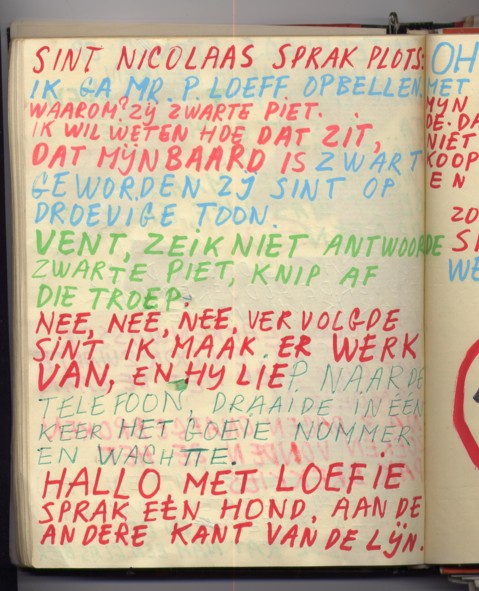 SINT NICOLAAS SPRAK PLOTS:
IK GA MR. P. LOEFF. OPBELLEN.
WAAROM? ZIJ ZWARTE PIET.
IK WIL WETEN HOE DAT ZIT,
DAT MIJN BAARD IS ZWART
GEWORDEN ZIJ SINT OP
DROEVIGE TOON.
VENT, ZEIK NIET ANTWOORDE
ZWARTE PIET, KNIP AF
DIE TROEP.
NEE, NEE, NEE, VERVOLGDE
SINT IK MAAK ER WERK
VAN, EN HY LIEP NAAR DE
TELEFOON, DRAAIDE IN ÉÉN
KEER HET GOEIE NUMMER
EN WACHTTE.
HALLO MET LOEFIE
SPRAK EEN HOND, AAN DE
ANDERE KANT VAN DE LIJN.
OH
MIJN
NIET
KOOP
EN
ZO